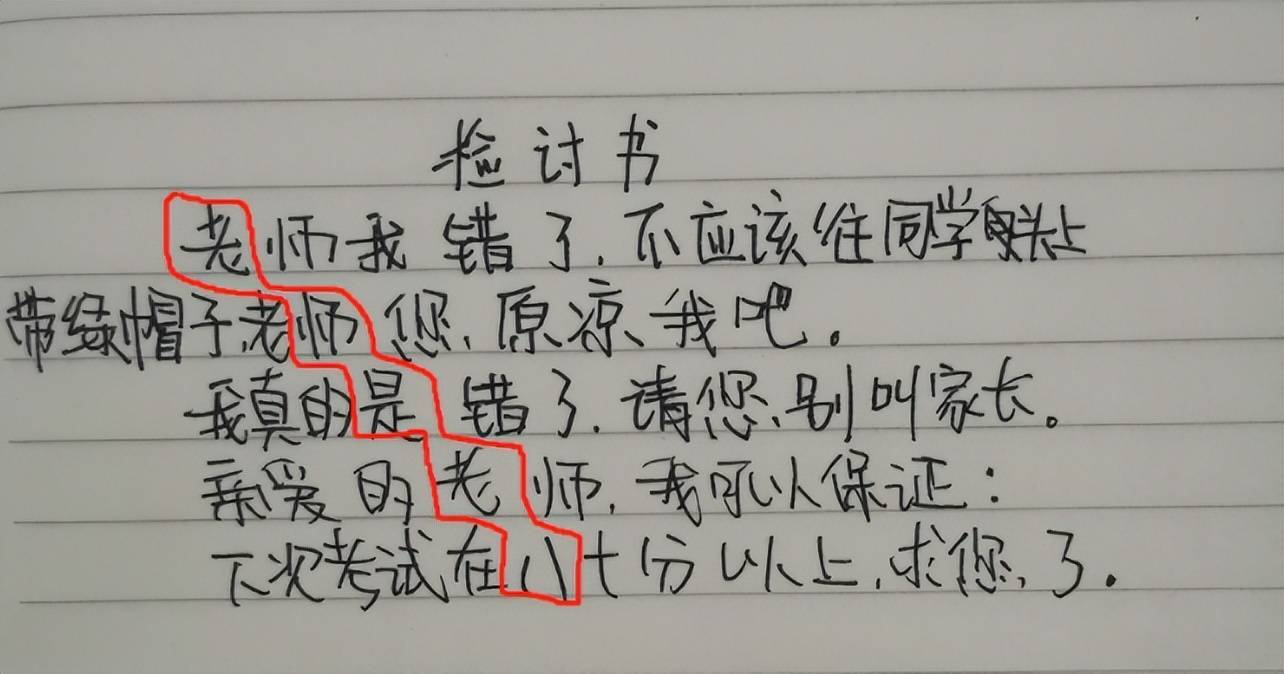 检讨书
老师我错了.不应该往同学头上
带绿帽子,老师您,原凉我吧。
我真的是错了.请您,别叫家长。
亲爱的老师,我可以保证:
下次考试在八十分以上,求您,了。